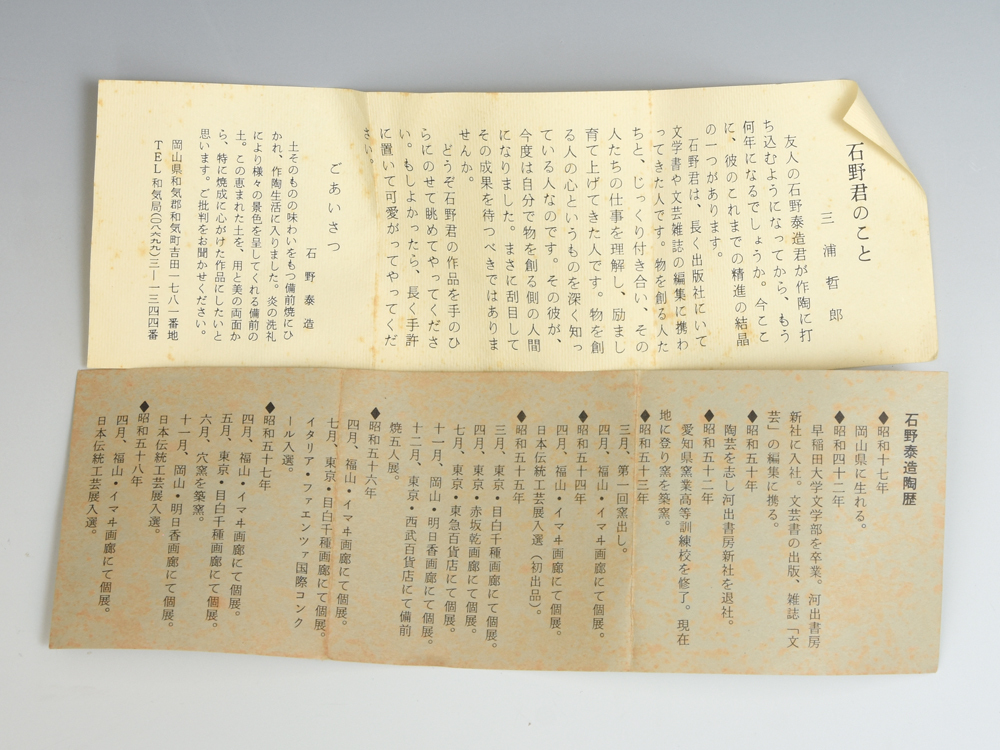 石野君のこと
三浦哲郎
友人の石野泰造君が作陶に打
ち込むようになってから、もう
何年になるでしょうか。今ここ
に、彼のこれまでの精進の結晶
の一つがあります。
石野君は、長く出版社にいて
文学書や文芸雑誌の編集に携わ
ってきた人です。物を創る人た
ちと、じっくり付き合い、その
人たちの仕事を理解し、励まし
育て上げてきた人です。物を創
る人の心というものを深く知っ
ている人なのです。その彼が、
今度は自分で物を創る側の人間
になりました。まさに刮目して
その成果を待つべきではありま
せんか。
どうぞ石野君の作品を手のひ
らにのせて眺めてやってくださ
い。もしよかったら、長く手許
に置いて可愛がってやってくだ
さい。
ごあいさつ
石野泰造
土そのものの味わいをもつ備前焼にひ
かれ、作陶生活に入りました。炎の洗礼
により様々の景色を呈してくれる備前の
土。この恵まれた土を、用と美の両面か
ら、特に焼成に心がけた作品にしたいと
思います。ご批判をお聞かせください。
岡山県和気郡和気町吉田一七八一番地
TEL和気局(〇八六九九)三―一三四四番
石野泰造陶歴
◆昭和十七年
岡山県に生れる。
◆昭和四十二年
早稲田大学文学部を卒業。河出書房
新社に入社。文芸書の出版、雑誌「文
芸」の編集に携る。
◆昭和五十年
陶芸を志し河出書房新社を退社。
◆昭和五十二年
愛知県窯業高等訓練校を修了。現在
地に登り窯を築窯。
◆昭和五十三年
三月、第一回窯出し。
四月、福山・イマヰ画廊にて個展。
◆昭和五十四年
四月、福山・イマヰ画廊にて個展。
日本伝統工芸展入選(初出品)。
◆昭和五十五年
三月、東京・目白千種画廊にて個展。
四月、東京・赤坂乾画廊にて個展。
七月、東京・東急百貨店にて個展。
十一月、岡山・明日香画廊にて個展。
十二月、東京・西武百貨店にて備前
焼五人展。
◆昭和五十六年
四月、福山・イマヰ画廊にて個展。
七月、東京・目白千種画廊にて個展。
イタリア・ファエンツァ国際コンク
ール入選。
◆昭和五十七年
四月、福山・イマヰ画廊にて個展。
五月、東京・目白千種画廊にて個展。
六月、穴窯を築窯。
十一月、岡山・明日香画廊にて個展。
日本伝統工芸展入選。
◆昭和五十八年
四月、福山・イマヰ画廊にて個展。
日本伝統工芸展入選。